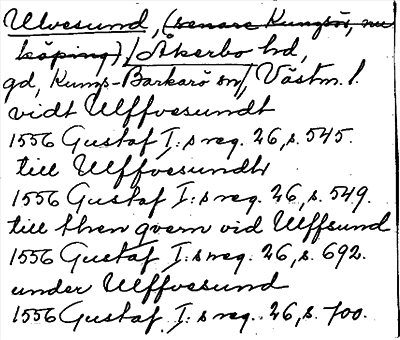 Ulvesund, (senare Kungsör, nu
köping) / Åkerbo hd,
gd, Kungs-Barkarö sn/, Västm. l.
vidt Ulffvesundt
1556 Gustaf I:s reg. 26, s. 545.
till Ulffvesundh
1556 Gustaf I:s reg. 26, s. 549.
till then qvern vid Ulffsund
1556 Gustaf I:s reg. 26, s. 692.
under Ulffvesund
1556 Gustaf I:s reg. 26, s. 700.